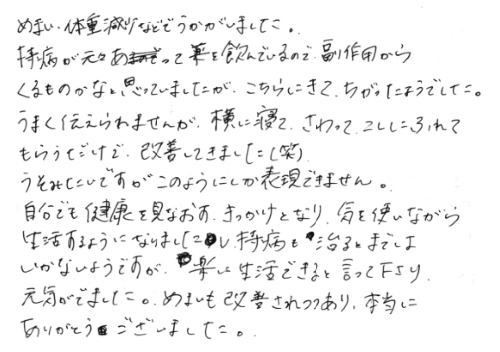 めまい、体重減少などでうかがいました。
持病が元々あって薬を飲んでいるので、副作用から
くるものかなと思っていましたが、こちらにきて、ちがったようでした。
うまく伝えられませんが、横に寝て、さわって、こしにふれて
もらうだけで、改善してきました(笑)
うそみたいですがこのようにしか表現できません。
自分でも健康を見なおす、きっかけとなり、気を使いながら
生活するようになりましたし、持病も治るとまでは
いかないようですが、楽に生活できると言って下さり、
元気がでました。めまいも改善されつつあり、本当に
ありがとうございました。